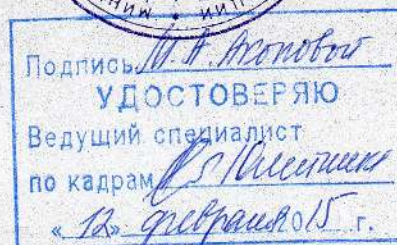 МИН ЦИИ
Подпись М.А. Акоповой
УДОСТОВЕРЯЮ
Ведущий специалист
по кадрам
«12» февраля 2015 г.